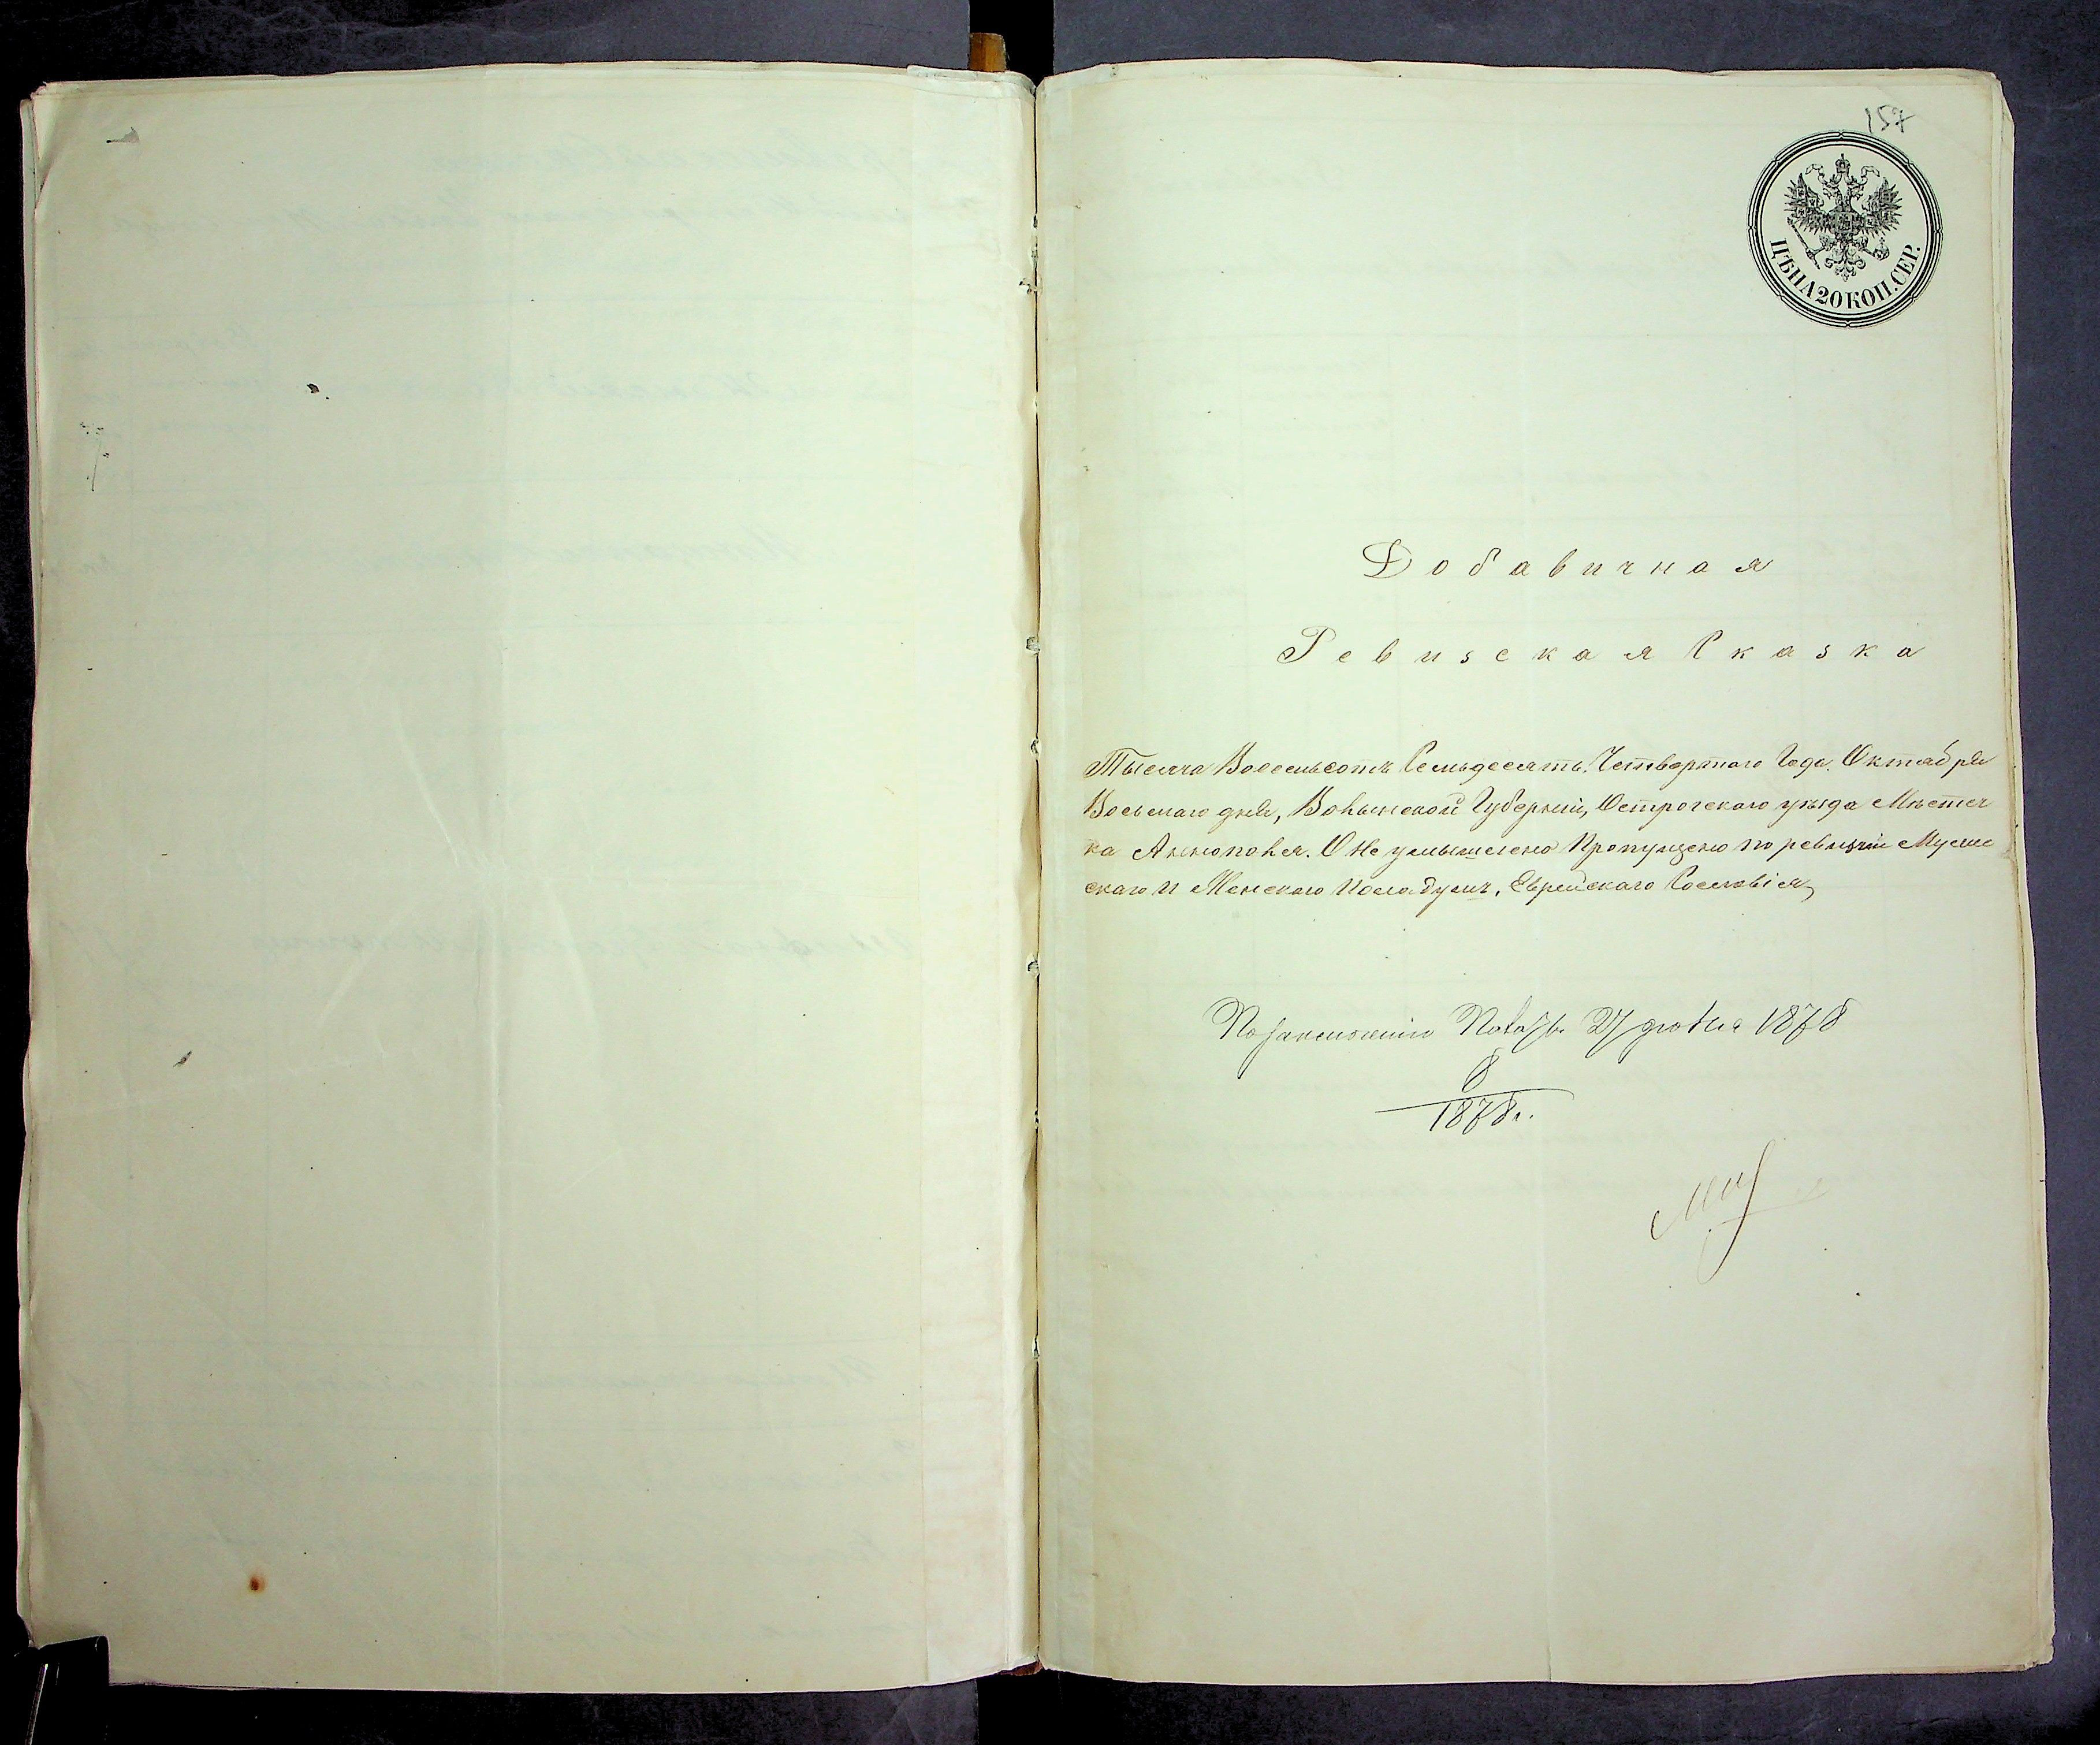 157
ЦѢНА 20 КОП. СЕР.
Добавичная
Ревизская Сказка
Тысяча Восемьсотъ Семьдесятъ Четвертаго Года Октября
Восьмаго дня, Волынской Губерніи, Острогскаго уѣзда Мѣстеч
ка Аннополя. О Не умышлено Пропущено по ревизіи Мужес
скаго и Женскаго Пола душъ, Еврейскаго Сословія,
27 1878
8
1878 г.